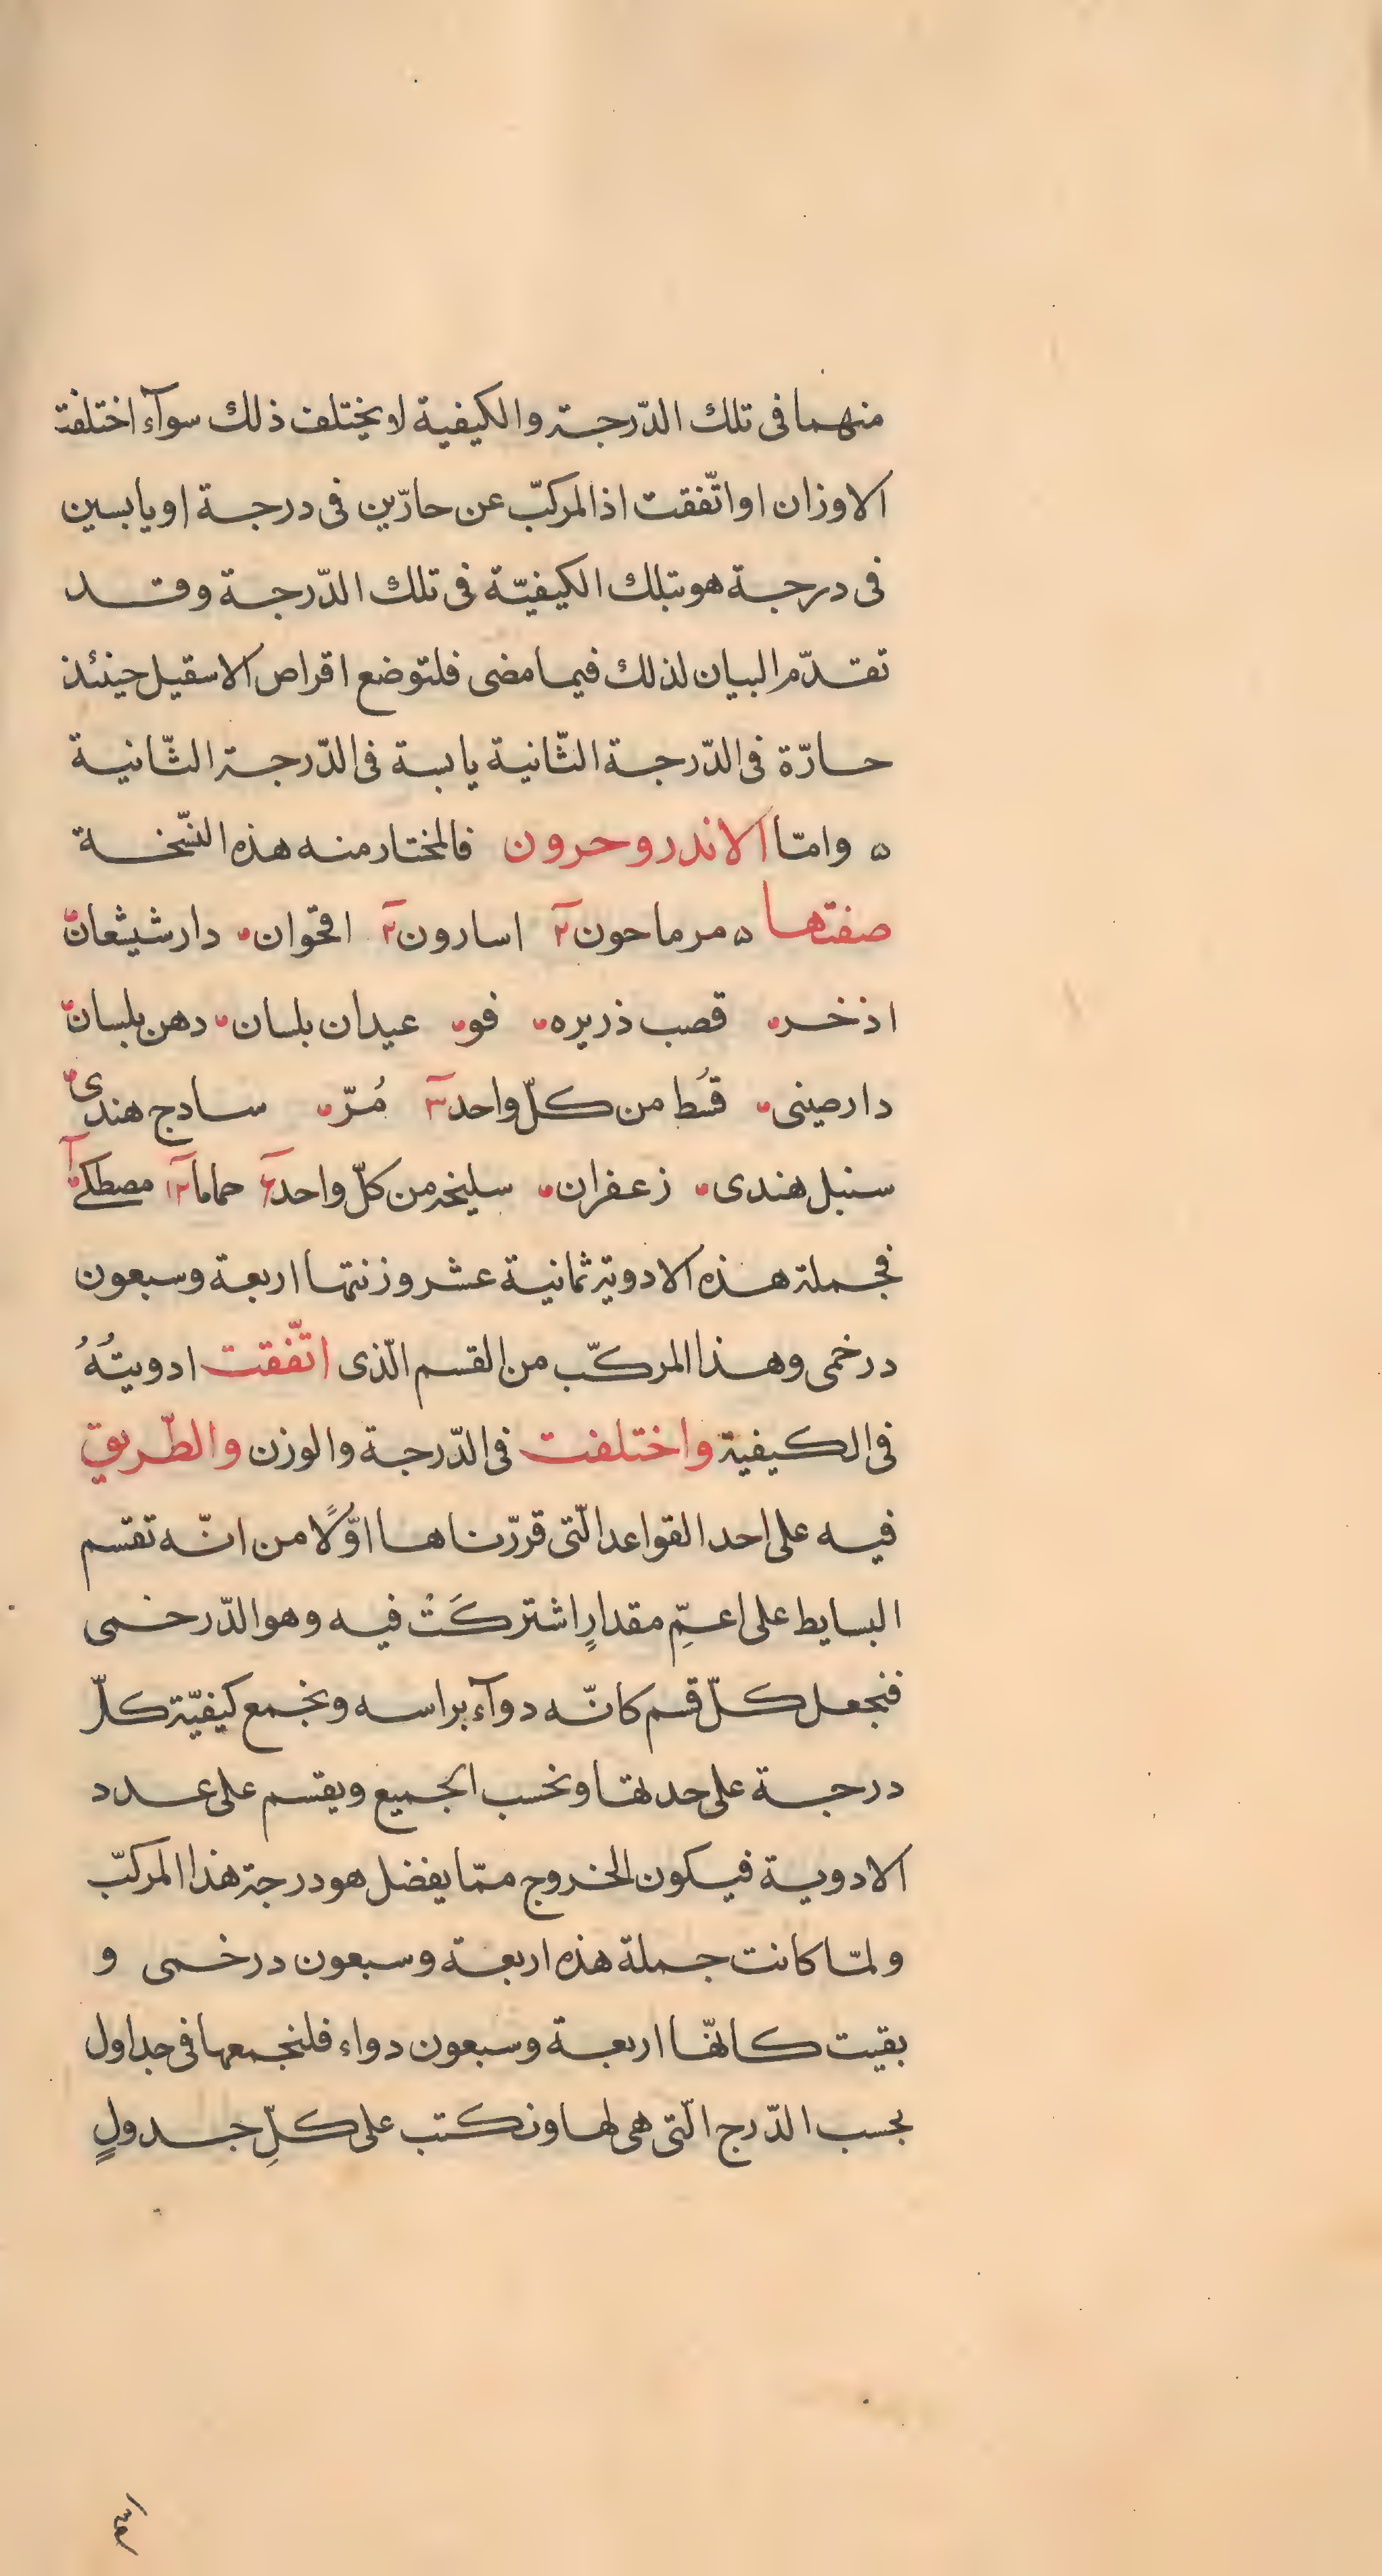 منهما فى تلك الدّرجة والكيفية لا يختلف ذلك سوآء اختلفت
الاوزان او اتّفقت اذ المركبّ عن حارّين فى درجة او يابسين
فى درجة هو بتلك الكيفيّة فى تلك الدّرجة وقد
تقدّم البيان لذلك فيما مضى فلتوضع اقراص الاسقيل حينئذ
حارّة فى الدّرجة الثّانية يابسة فى الدّرجة الثّانية
ه وامّا الاندروحرون فالمختار منه هذه النّسخة
صفتها ه مرماحون ٢ اسارون ٢ اقحّوان دارشيشعان
اذخر قصب ذريره فو عيدان بلسان دهن بلسان
دارصينى قُسط من كلّ واحد ٣ مُرّ سادج هندى
سنبل هندى زعفران سليخه من كلّ واحد ٦ حماما ١٢ مصطكى ١
فجملة هذه الادوية ثمانية عشر وزنتها اربعة وسبعون
درخمى وهذا المركّب من القسم الّذى اتّفقت ادويتُهُ
فى الكيفية واختلفت فى الدّرجة والوزن والطّريق
فيه على احد القواعد الّتى قررّناها اوّلًا من انّه تقسم
البسايط على اعمِّ مقدارٍ اشتركَتْ فيه وهو الدّرخمى
فنجعل كلّ قسم كانّه دوآء براسه ونجمع كيفيّة كلّ
درجة على حدتها ونحسب الجميع ويقسم على عدد
الادوية فيكون الخروج ممّا يفضل هو درجة هذا المركبّ
ولمّا كانت جملة هذه اربعة وسبعون درخمى و
بقيت كانّها اربعة وسبعون دواء فلنجمعها فى جداول
بحسب الدّرج الّتى هى لها ونكتب على كلِّ جدولٍ